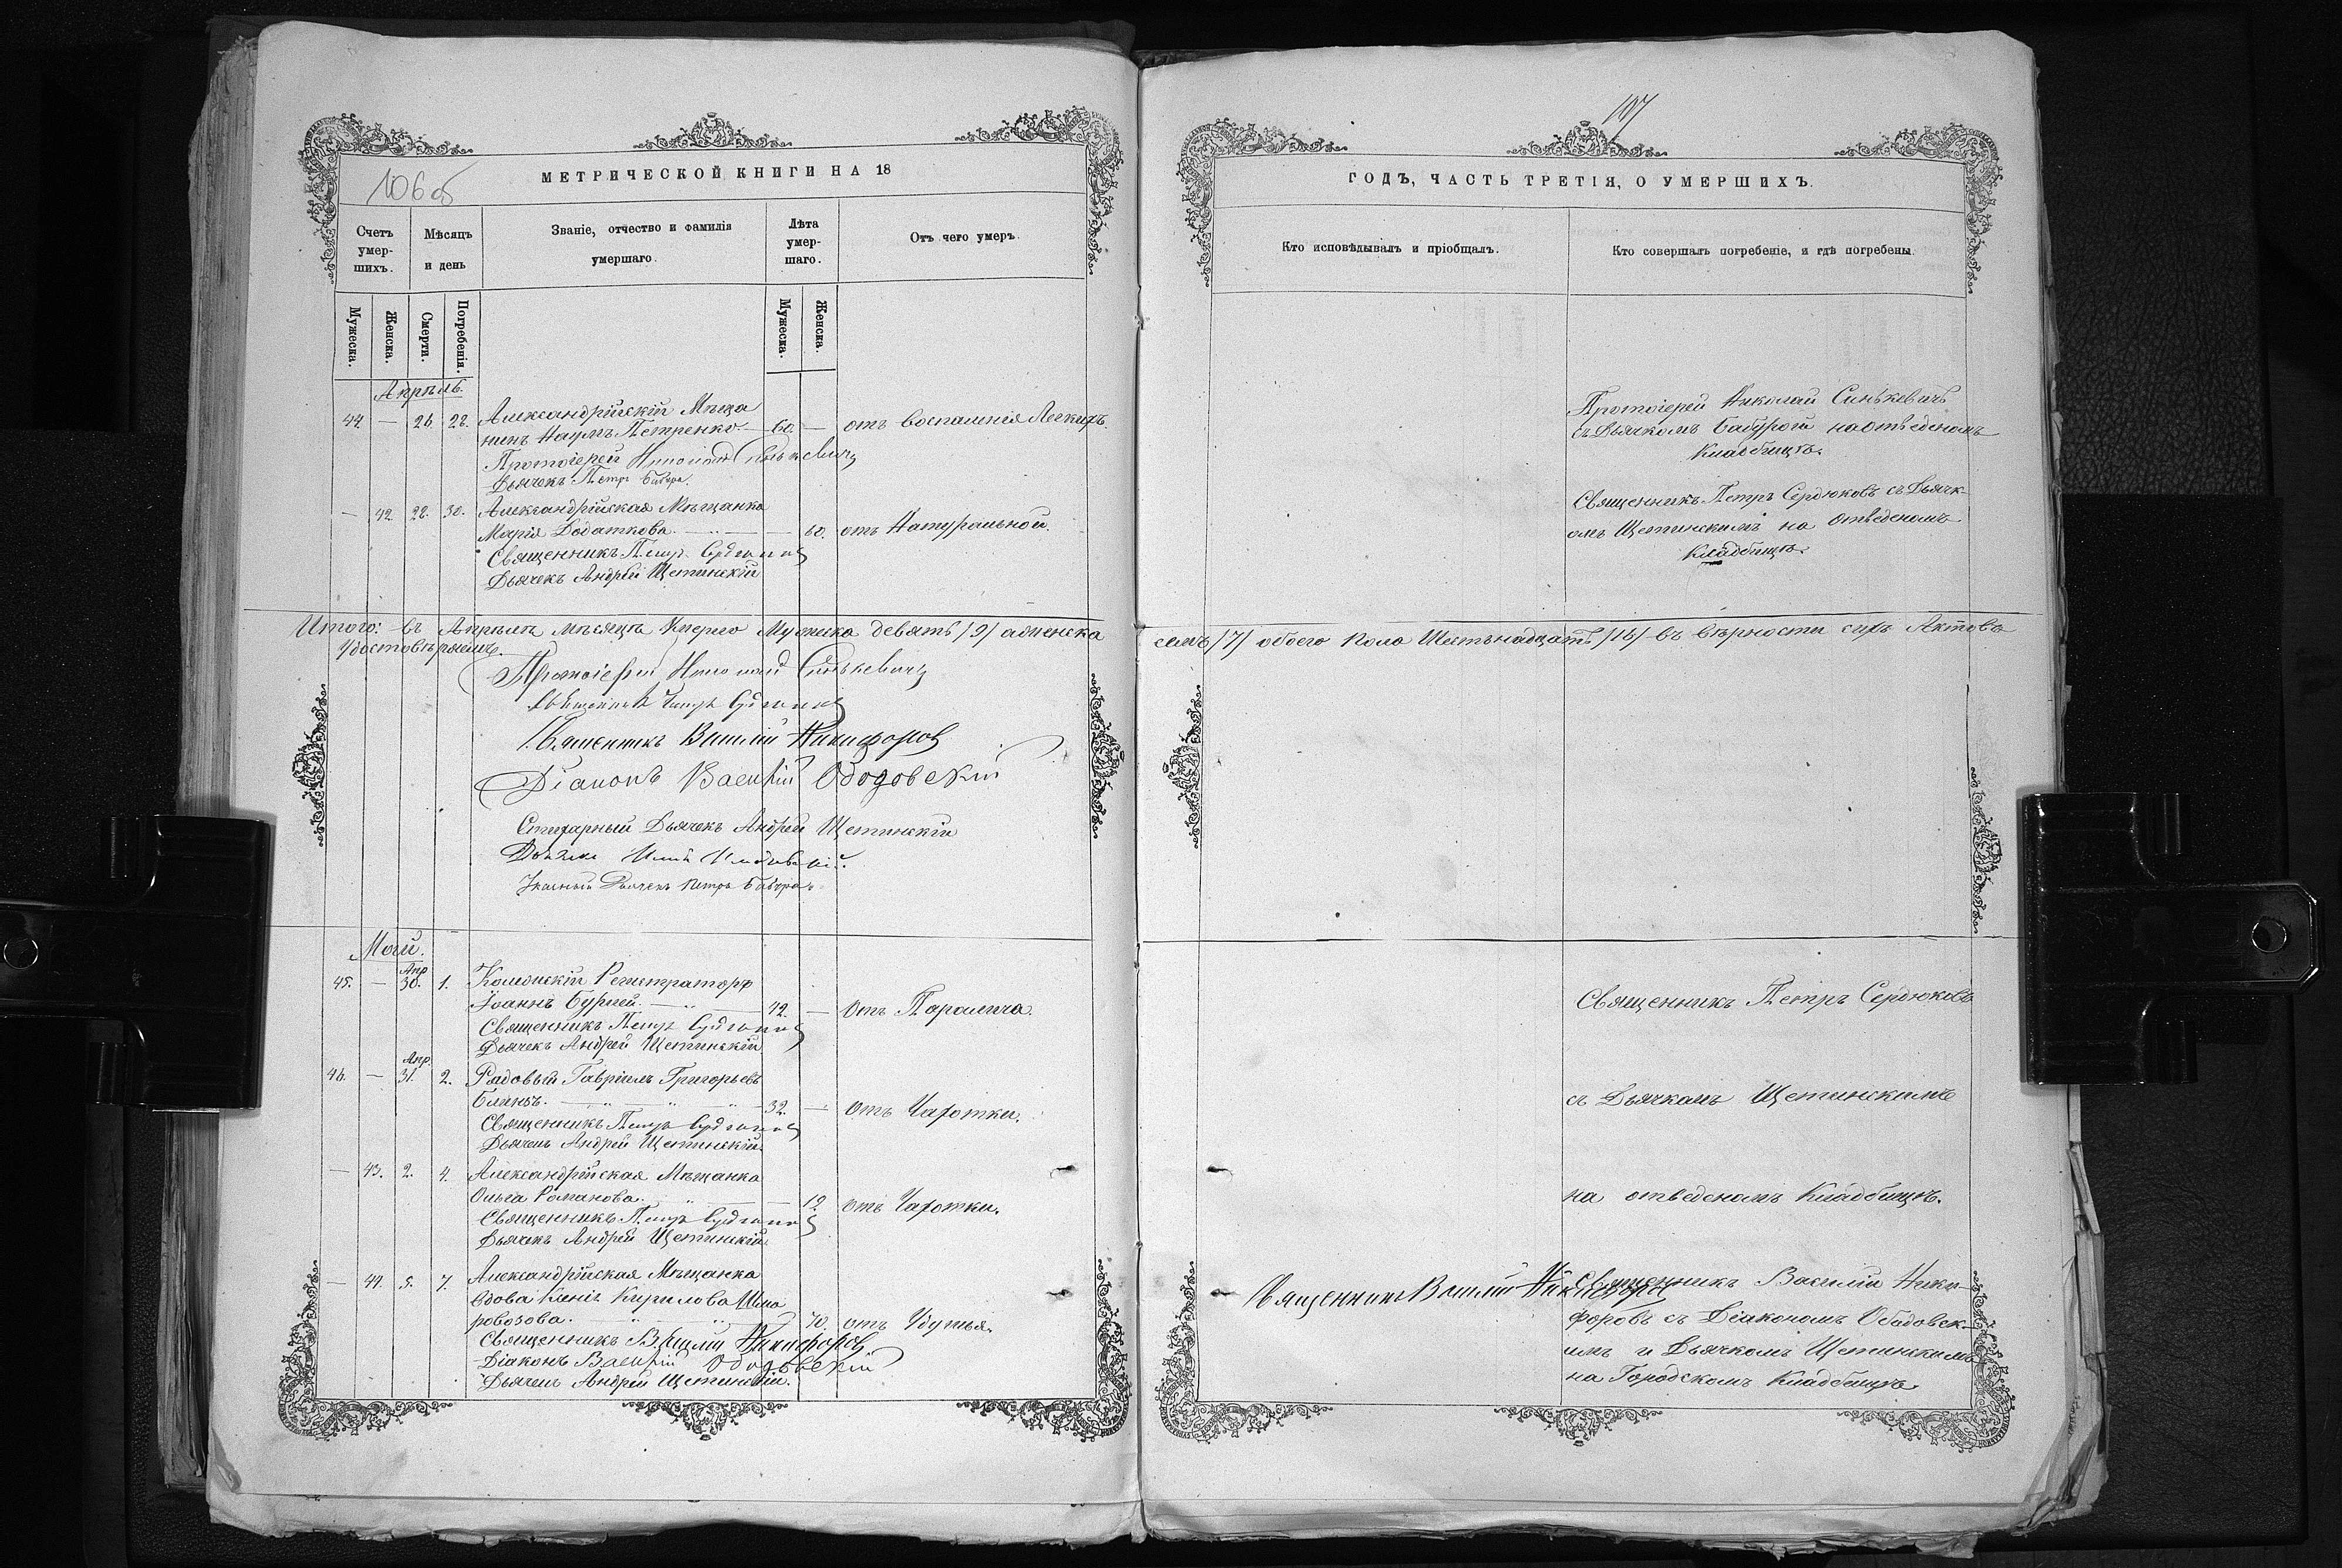 106 об
МЕТРИЧЕСКОЙ КНИГИ НА 18
Счетъ умер-шихъ.
Мѣсяцъ и день
Званіе, отчество и фамилія умершаго.
Лѣта умер-шаго.
Отъ чего умеръ.
Мужеска.
Женска.
Смерти.
Погребенія.
Мужеска.
Женска.
Апрѣль.
Александрійскій Мѣща
44. — 26. 28. нинъ Наумъ Петренко. — 60. — отъ Воспаленія Легкихъ.
Протоіерей Николай Синькевичъ
Дьячекъ Петръ Бабура.
— 42. 28. 30. Александрійская Мѣщанка
Марія Додаткова. — 60. отъ Натуральной.
Священникъ Петръ Сердюковъ
Дьячекъ Андрей Щетинскій
Итого: въ Апрѣлѣ мѣсяцѣ умерло Мужеска девять /9/ а женска
Удостовѣряемъ.
Протоіерей Николай Синькевичъ
Священникъ Петръ Сердюковъ
Священникъ Василій Никифоровъ
Діаконъ Василій Ободовскій
Стихарный Дьячекъ Андрей Щетинскій
Дьячекъ
Указный Дьячекъ Петръ Бабура
Май.
Апр
45. — 30. 1. Коллежскій Регистраторъ
Іоаннъ — 42. — Отъ Паралича.
Священникъ Петръ Сердюковъ
Дьячекъ Андрей Щетинскій
Апр.
46. — 31. 2. Рядовый Гавріилъ Григорьевъ
— 32. — отъ Чахотки.
Священникъ Петръ Сердюковъ
Дьячекъ Андрей Щетинскій
— 43. 2. 4. Александрійская Мѣщанка
Ольга Романова. — 12. отъ Чахотки.
Священникъ Петръ Сердюковъ
Дьячекъ Андрей Щетинскій
— 44. 5. 7. Александрійская Мѣщанка
Вдова Кирилова Шма
ровозова. — 70. отъ Удушья.
Священникъ Василій Никифоровъ
Діаконъ Василій Ободовскій
Дьячекъ Андрей Щетинскій.
107
ГОДЪ, ЧАСТЬ ТРЕТІЯ, О УМЕРШИХЪ.
Кто исповѣдывалъ и пріобщалъ.
Кто совершалъ погребеніе, и гдѣ погребены.
Протоіерей Николай Синькевичъ
съ Дьячкомъ Бабурой на отведеномъ
Кладбищѣ.
Священникъ Петръ Сердюковъ съ Дьячк-
омъ Щетинскимъ на отведеномъ
Кладбищѣ.
семь /7/ обоего пола Шестьнадцать /16/ въ вѣрности сихъ Актовъ
Священникъ Петръ Сердюковъ
съ Дьячкомъ Щетинскимъ
на отведеномъ Кладбищѣ.
Священникъ Василій Никифоровъ
Священникъ Василій Ники-
форовъ съ Діакономъ Ободовск-
имъ и Дьячкомъ Щетинскимъ
на Городскомъ Кладбищѣ.